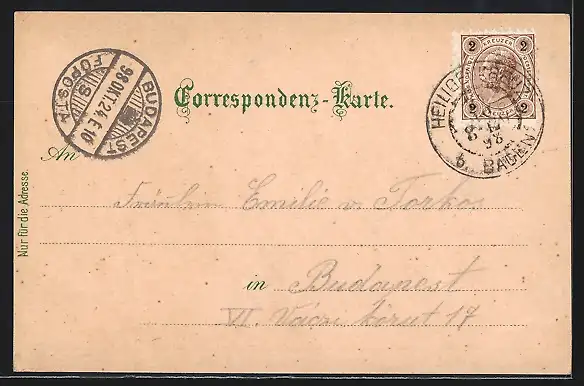 2 KREUZER 2
2 2
BUDAPEST
98 OKT. 24. E 10
FŐPOSTA
Correspondenz-Karte.
HEILIG
b. BAGEN
98
An
Fräulein Emilie v. Torkos
in Budapest
VI. Váczi körut 17
Nur für die Adresse.